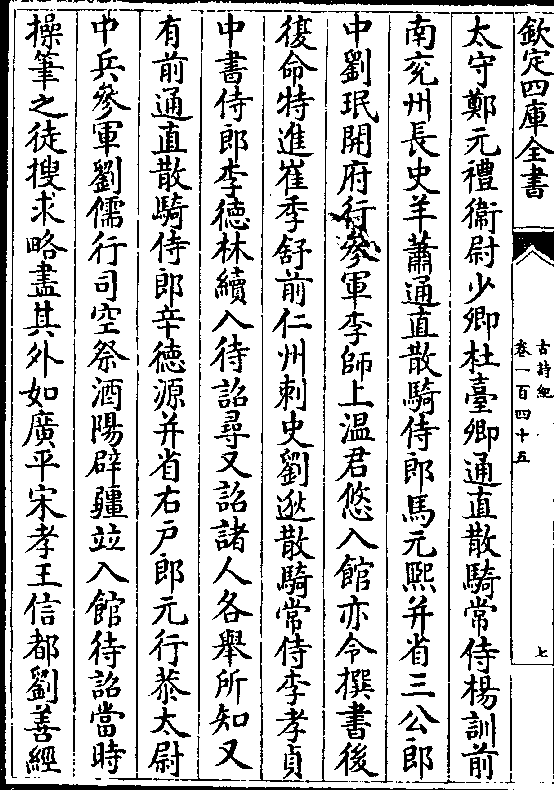 欽定四庫全書
古詩紀
卷一百四十五
七
太守鄭元禮衞尉少卿杜臺卿通直散騎常侍楊訓前
南兖州長史羊蕭通直散騎侍郎馬元熙并省三公郎
中劉珉開府行參軍李師上温君悠入館亦令撰書後
復命特進崔季舒前仁州刺史劉逖散騎常侍李孝貞
中書侍郎李徳林續入待詔尋又詔諸人各舉所知又
有前通直散騎侍郎辛徳源并省右户郎元行恭太尉
中兵參軍劉儒行司空祭酒陽辟疆竝入館待詔當時
操筆之徒搜求略盡其外如廣平宋孝王信都劉善經